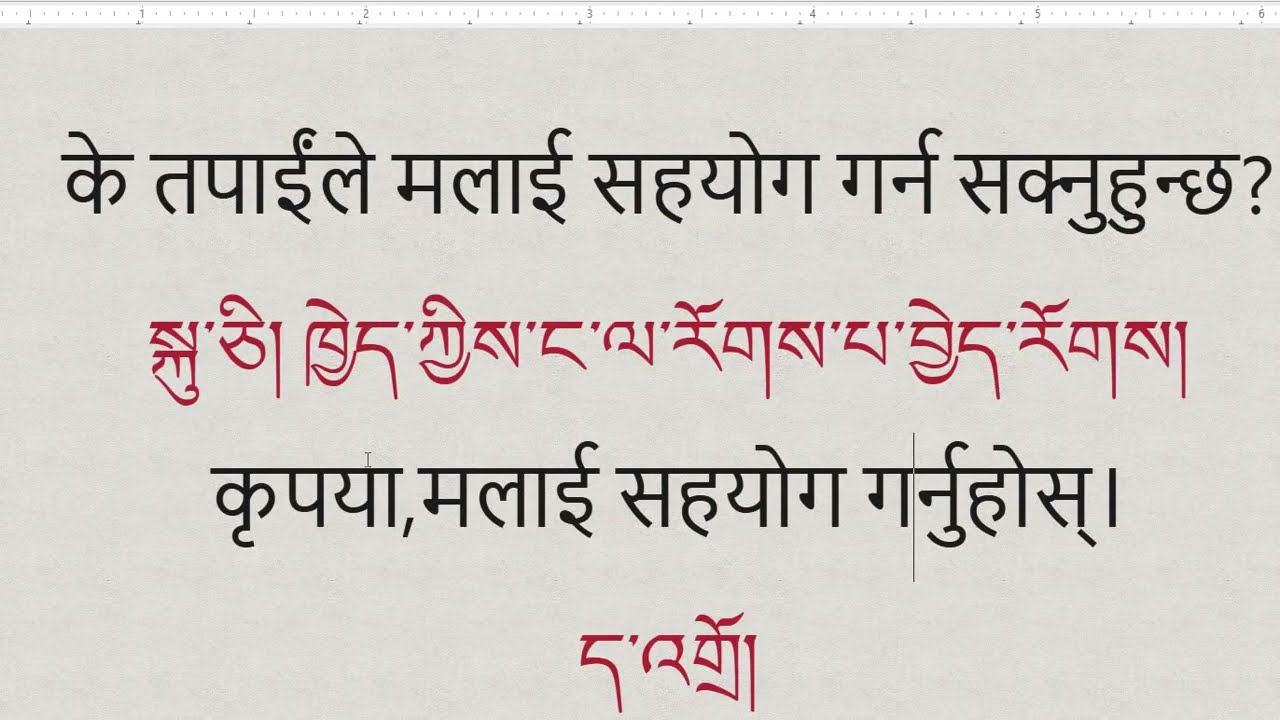 1 2 3 4 5 6
के तपाईंले मलाई सहयोग गर्न सक्नुहुन्छ?
སྐུ་ཅི། ཁྱེད་ཀྱིས་ང་ལ་རོགས་པ་བྱེད་རོགས།
कृपया,मलाई सहयोग गर्नुहोस्।
ད་འགྲོ།